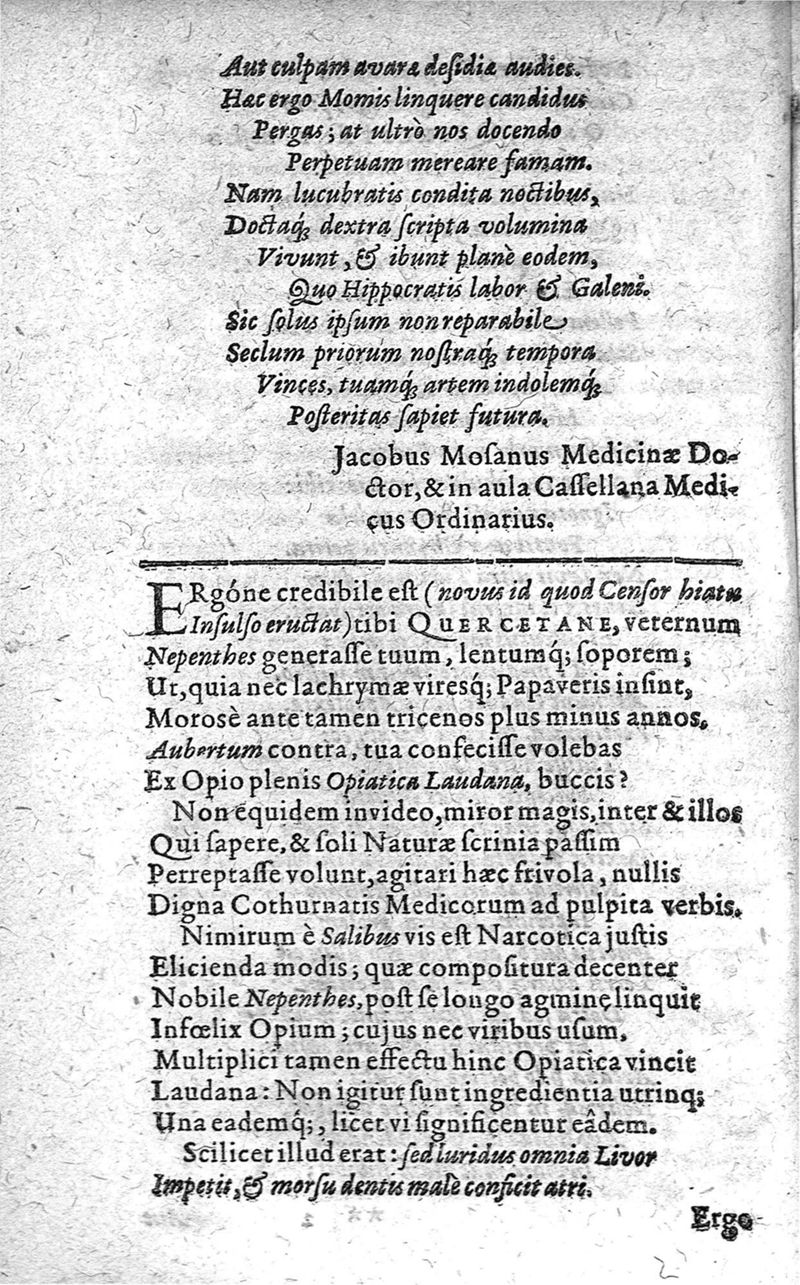 Aut culpam avaræ deſidiæ audies.
Hæc ergo Momis linquere candidus
Pergas; at ultrò nos docendo
Perpetuam mereare famam.
Nam lucubratis condita noctibus,
Doctaq́ꝫ dextra ſcripta volumina
Vivunt, & ibunt planè eodem,
Quo Hippocratis labor & Galeni.
Sic ſolus ipſum non reparabile
Seclum priorum noſtraq́ꝫ tempora
Vinces, tuamq́ꝫ artem indolemq́ꝫ
Poſteritas ſapiet futura.
Jacobus Moſanus Medicinæ Do-
ctor, & in aula Caſſellana Medi-
cus Ordinarius.
ERgóne credibile eſt (novus id quod Cenſor hiatu
Inſulſo eructat) tibi QUERCETANE, veternum
Nepenthes generaſſe tuum, lentumq́; ſoporem;
Ut, quia nec lachrymæ viresq́; Papaveris inſint,
Morosè ante tamen tricenos plus minus annos,
Aubertum contra, tua confeciſſe volebas
Ex Opio plenis Opiatica Laudana, buccis?
Non equidem invideo, miror magis, inter & illos
Qui ſapere, & ſoli Naturæ ſcrinia paſſim
Perreptaſſe volunt, agitari hæc frivola, nullis
Digna Cothurnatis Medicorum ad pulpita verbis.
Nimirum è Salibus vis eſt Narcotica juſtis
Elicienda modis; quæ compoſitura decenter
Nobile Nepenthes, poſt ſe longo agmine linquit
Infœlix Opium; cujus nec viribus uſum,
Multiplici tamen effectu hinc Opiatica vincit
Laudana: Non igitur ſunt ingredientia utrinq;
Una eademq́;, licet vi ſignificentur eâdem.
Scilicet illud erat: ſed luridus omnia Livor
Impetit, & morſu dentis malè conficit atri.
Ergo